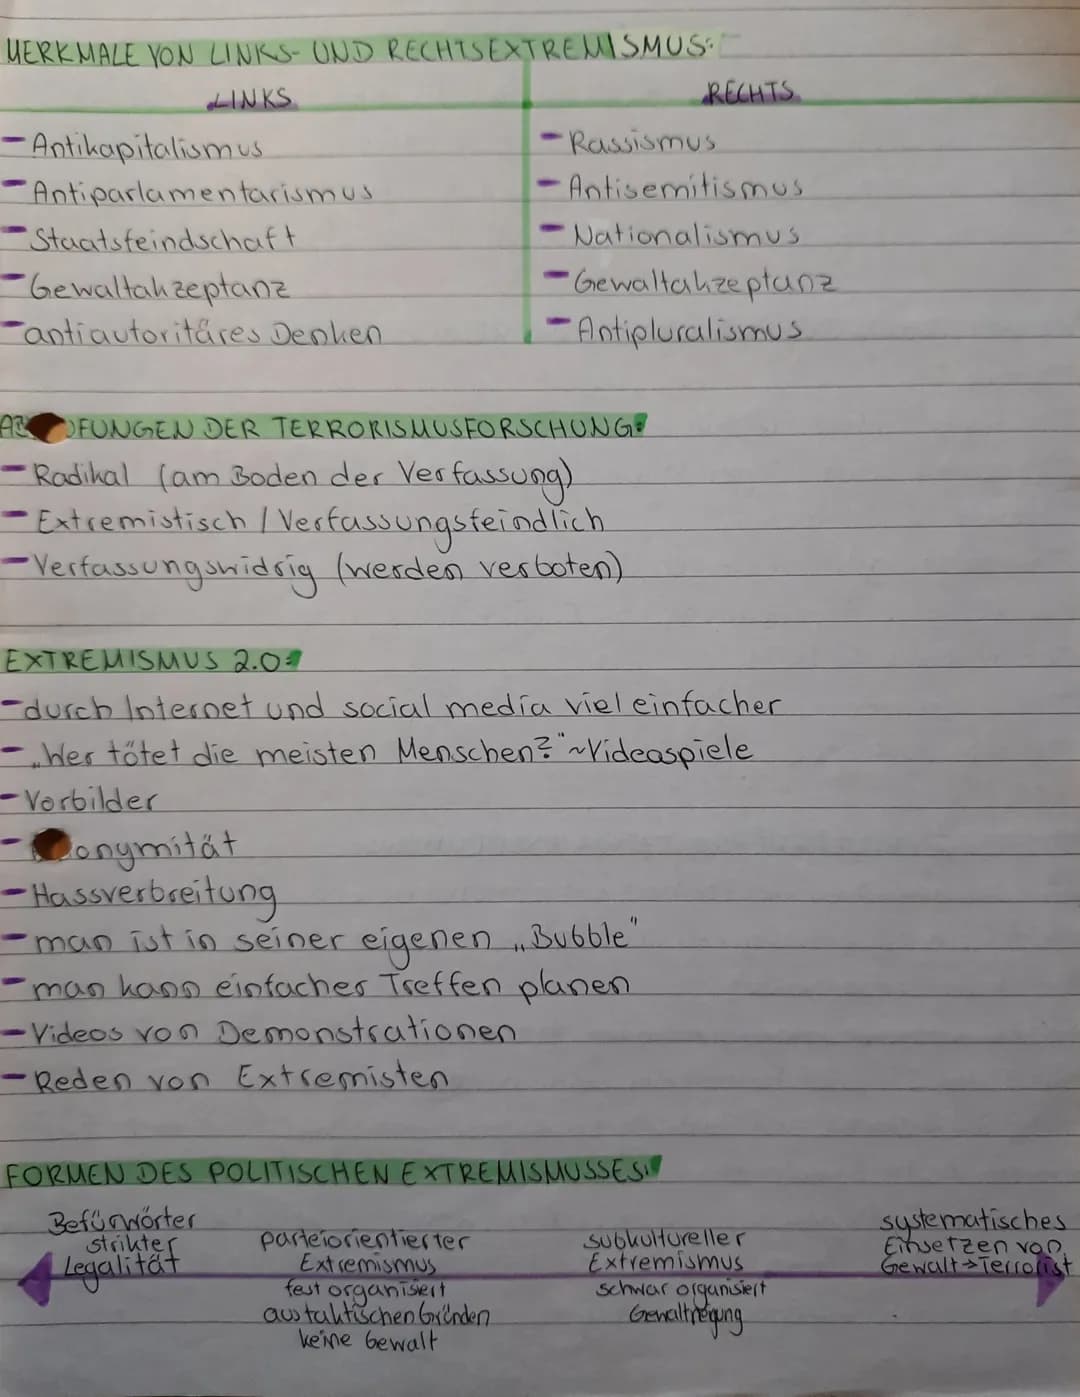 MERKMALE VON LINKS- UND RECHTSEXTREMISMUS:
LINKS
- Antikapitalismus
- Antiparlamentarismus
- Staatsfeindschaft
- Gewaltakzeptanz
- antiautoritäres Denken
RECHTS
- Rassismus
- Antisemitismus
- Nationalismus
- Gewaltakzeptanz
- Antipluralismus
DER TERRORISMUSFORSCHUNG:
- Radikal (am Boden der Verfassung)
- Extremistisch / Verfassungsfeindlich
- Verfassungswidrig (werden verboten)
EXTREMISMUS 2.0:
- durch Internet und social media viel einfacher
- „Wer tötet die meisten Menschen?" ~Videospiele
- Vorbilder
- onymität
- Hassverbreitung
- man ist in seiner eigenen „Bubble"
- man kann einfacher Treffen planen
- Videos von Demonstrationen
- Reden von Extremisten
FORMEN DES POLITISCHEN EXTREMISMUSSES:
Befürwörter
strikter
Legalität
parteiorientierter
Extremismus
fest organisiert
aus taktischen Gründen
keine Gewalt
subkultureller
Extremismus
schwar organisiert
systematisches
Einsetzen von
Gewalt→Terrorist